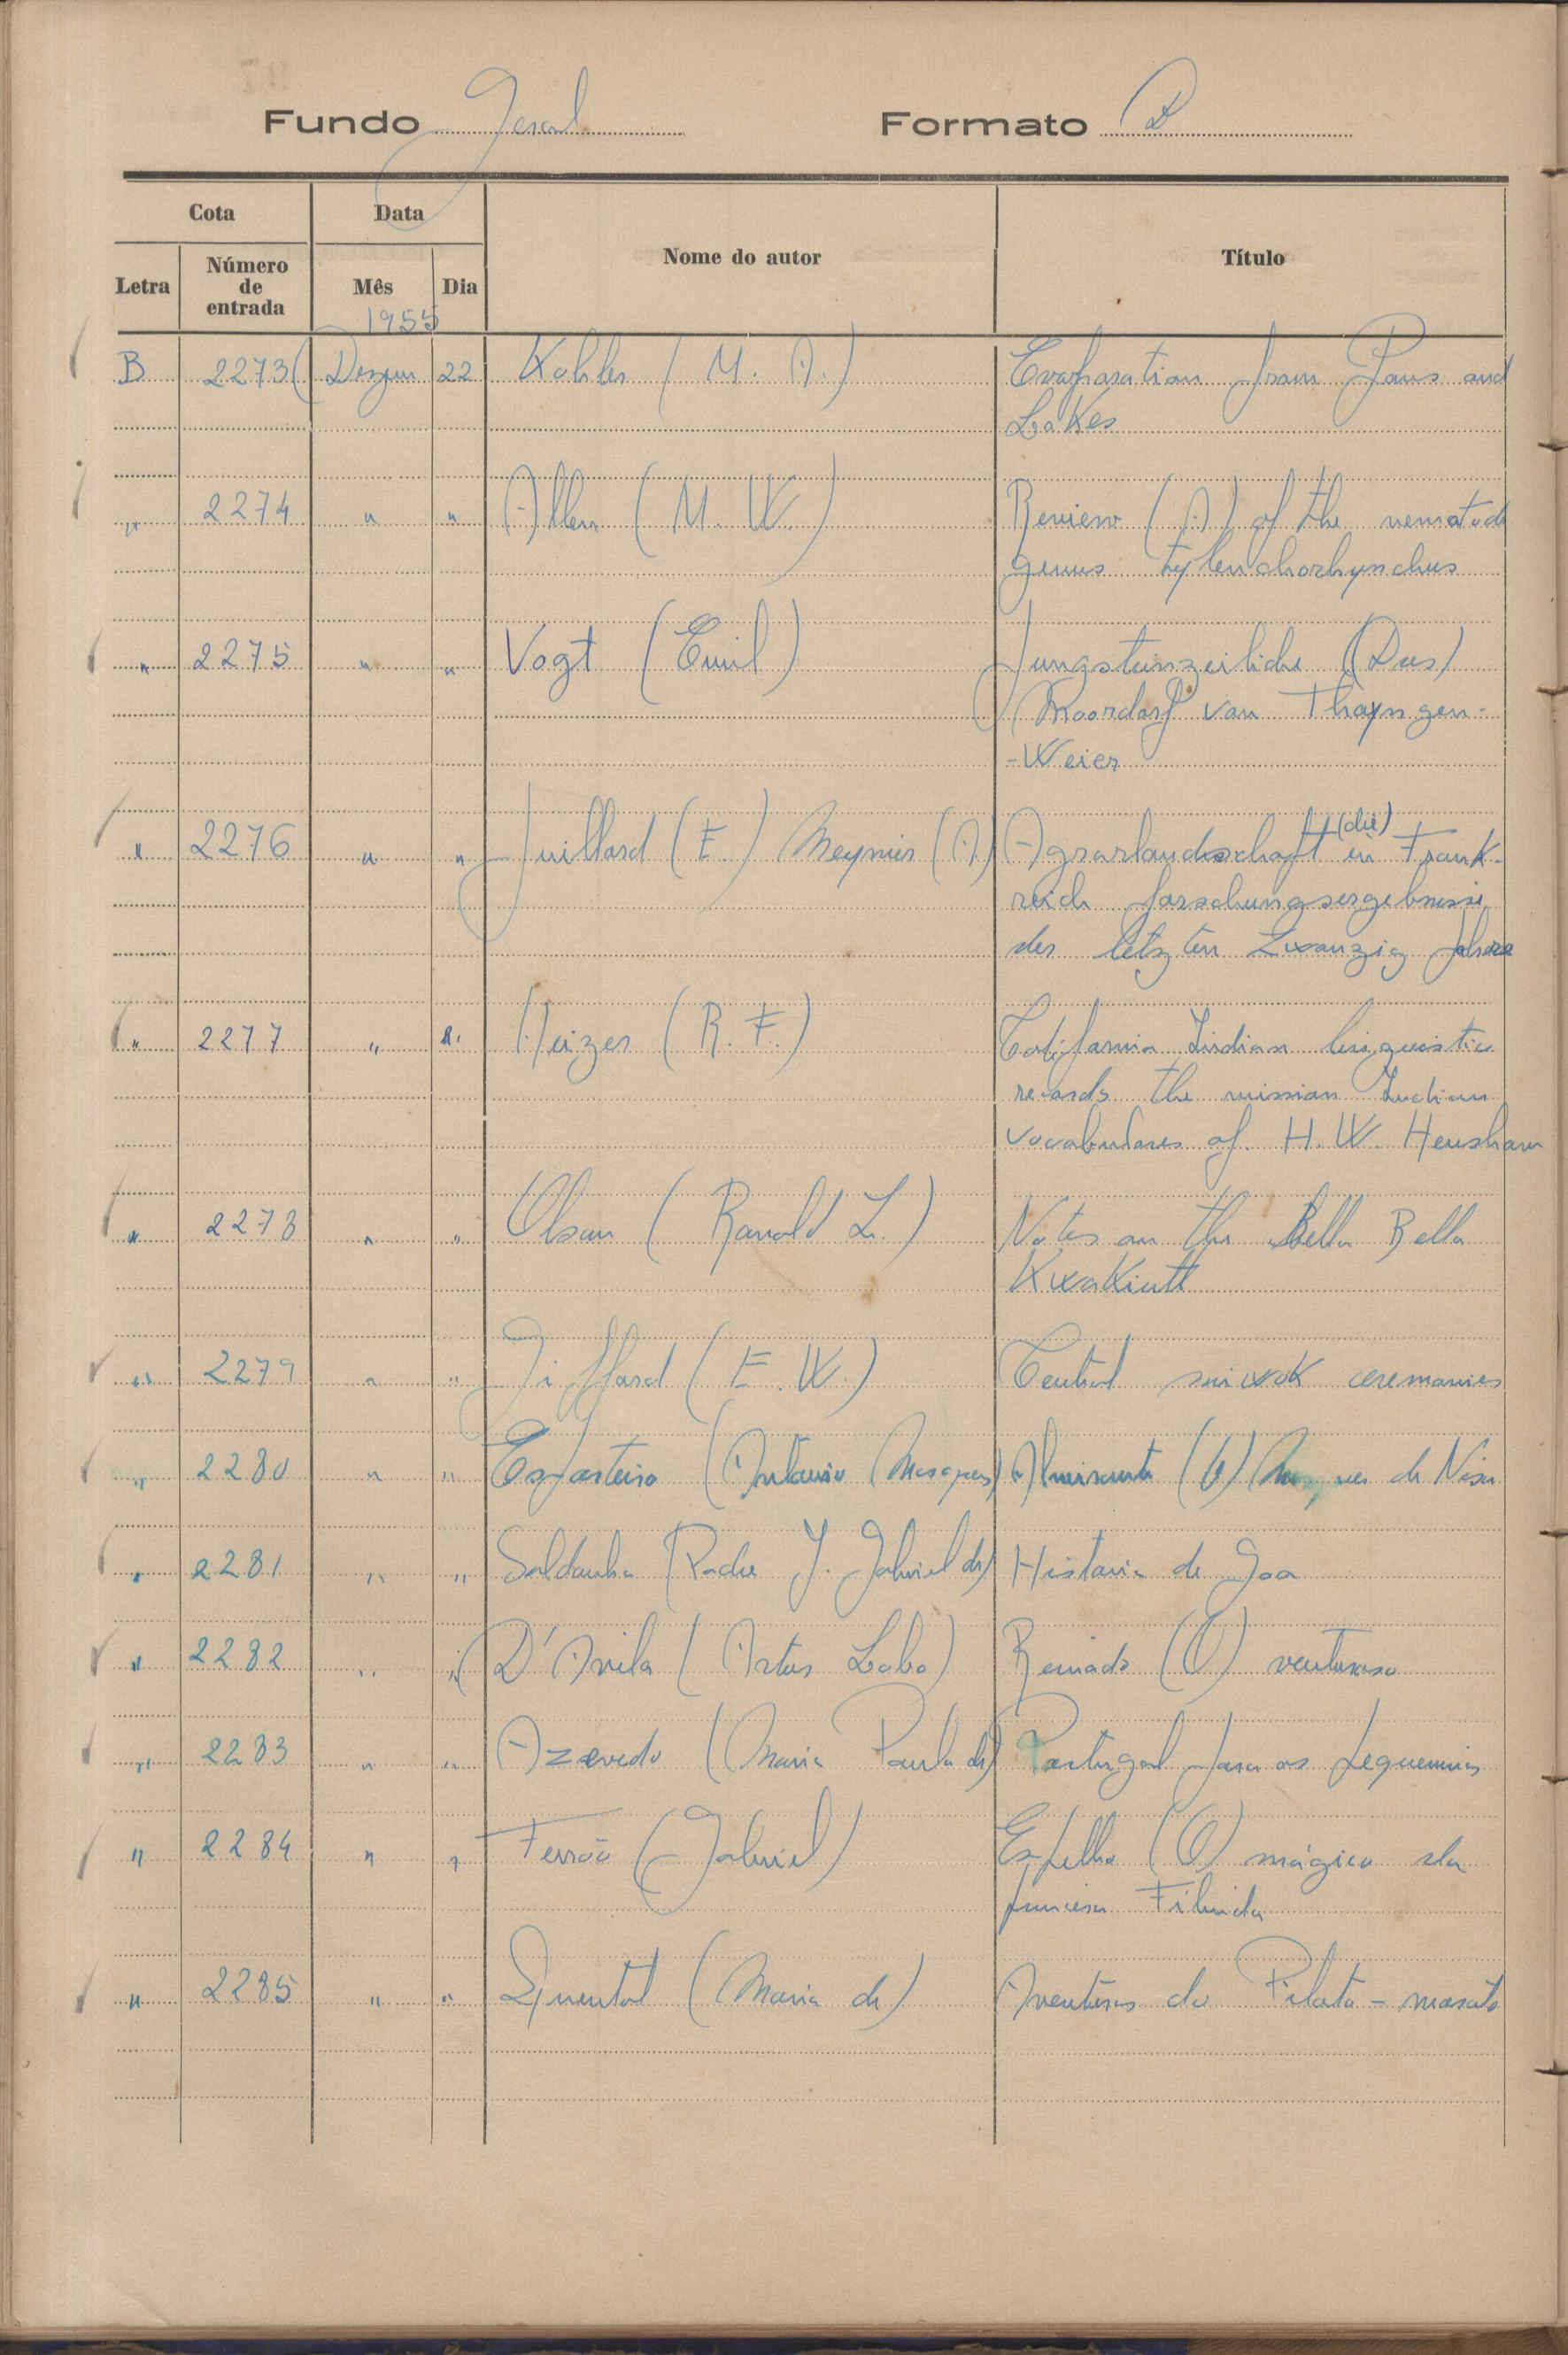 Fundo Geral Formato B
Cota Data Nome do autor Título
Letra Número de entrada Mês Dia
1955
B 2273 Dezem 22 Kohler (M. A.) Evaporation from Pans and
Lakes
" 2274 " " Allen (M. W.) Review (A) of the nematode
genus tylenchorhynchus
" 2275 " " Vogt (Emil) Jungsteinzeiliche (Das)
Moordorf von Thayngen-
-Weier
" 2276 " " Juillard (E.) Meynier (A) Agrarlandschaft (die) in Frank-
reich forschungsergebnisse
der letzten Zwanzig Jahre
" 2277 " " Heizer (R. F.) California Indian linguistic
records the mission Indian
vocabularies of H. W. Henshaw
" 2278 " " Olson (Ronald L.) Notes on the Bella Bella
Kwakiutl
" 2279 " " Gifford (E. W.) Central miwok ceremonies
" 2280 " " Esparteiro (Antonio Marques) Almirante (O) Marques de Nisa
" 2281 " " Saldanha (Padre J. Gabriel de) Historia de Goa
" 2282 " " D'Avila (Artur Lobo) Reinado (O) venturoso
" 2283 " " Azevedo (Maria Paula de) Portugal para os pequeninos
" 2284 " " Ferrão (Gabriel) Espelho (O) mágico da
princesa
" 2285 " " Quental (Maria de) Aventuras do Piloto-maroto